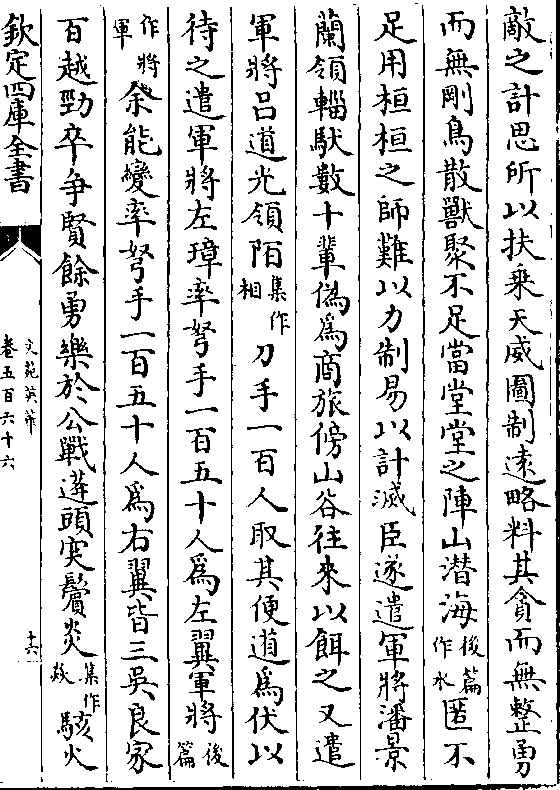 敵之計思所以扶乗天威圖制遠略料其貪而無整勇
而無剛鳥散獸聚不足當堂堂之陣山潛海後篇作水匿不
足用桓桓之師難以力制易以計滅臣遂遣軍將潘景
蘭領輜馱數十輩偽為商旅傍山谷往來以餌之又遣
軍將吕道光領陌集作相刀手一百人取其便道為伏以
待之遣軍將左璋率弩手一百五十人為左翼軍將後篇
作將軍余能變率弩手一百五十人為右翼皆三吳良家
百越勁卒爭賢餘勇樂於公戰蓬頭突鬢炎集作歘駭火
欽定四庫全書
文苑英華
卷五百六十六
十六